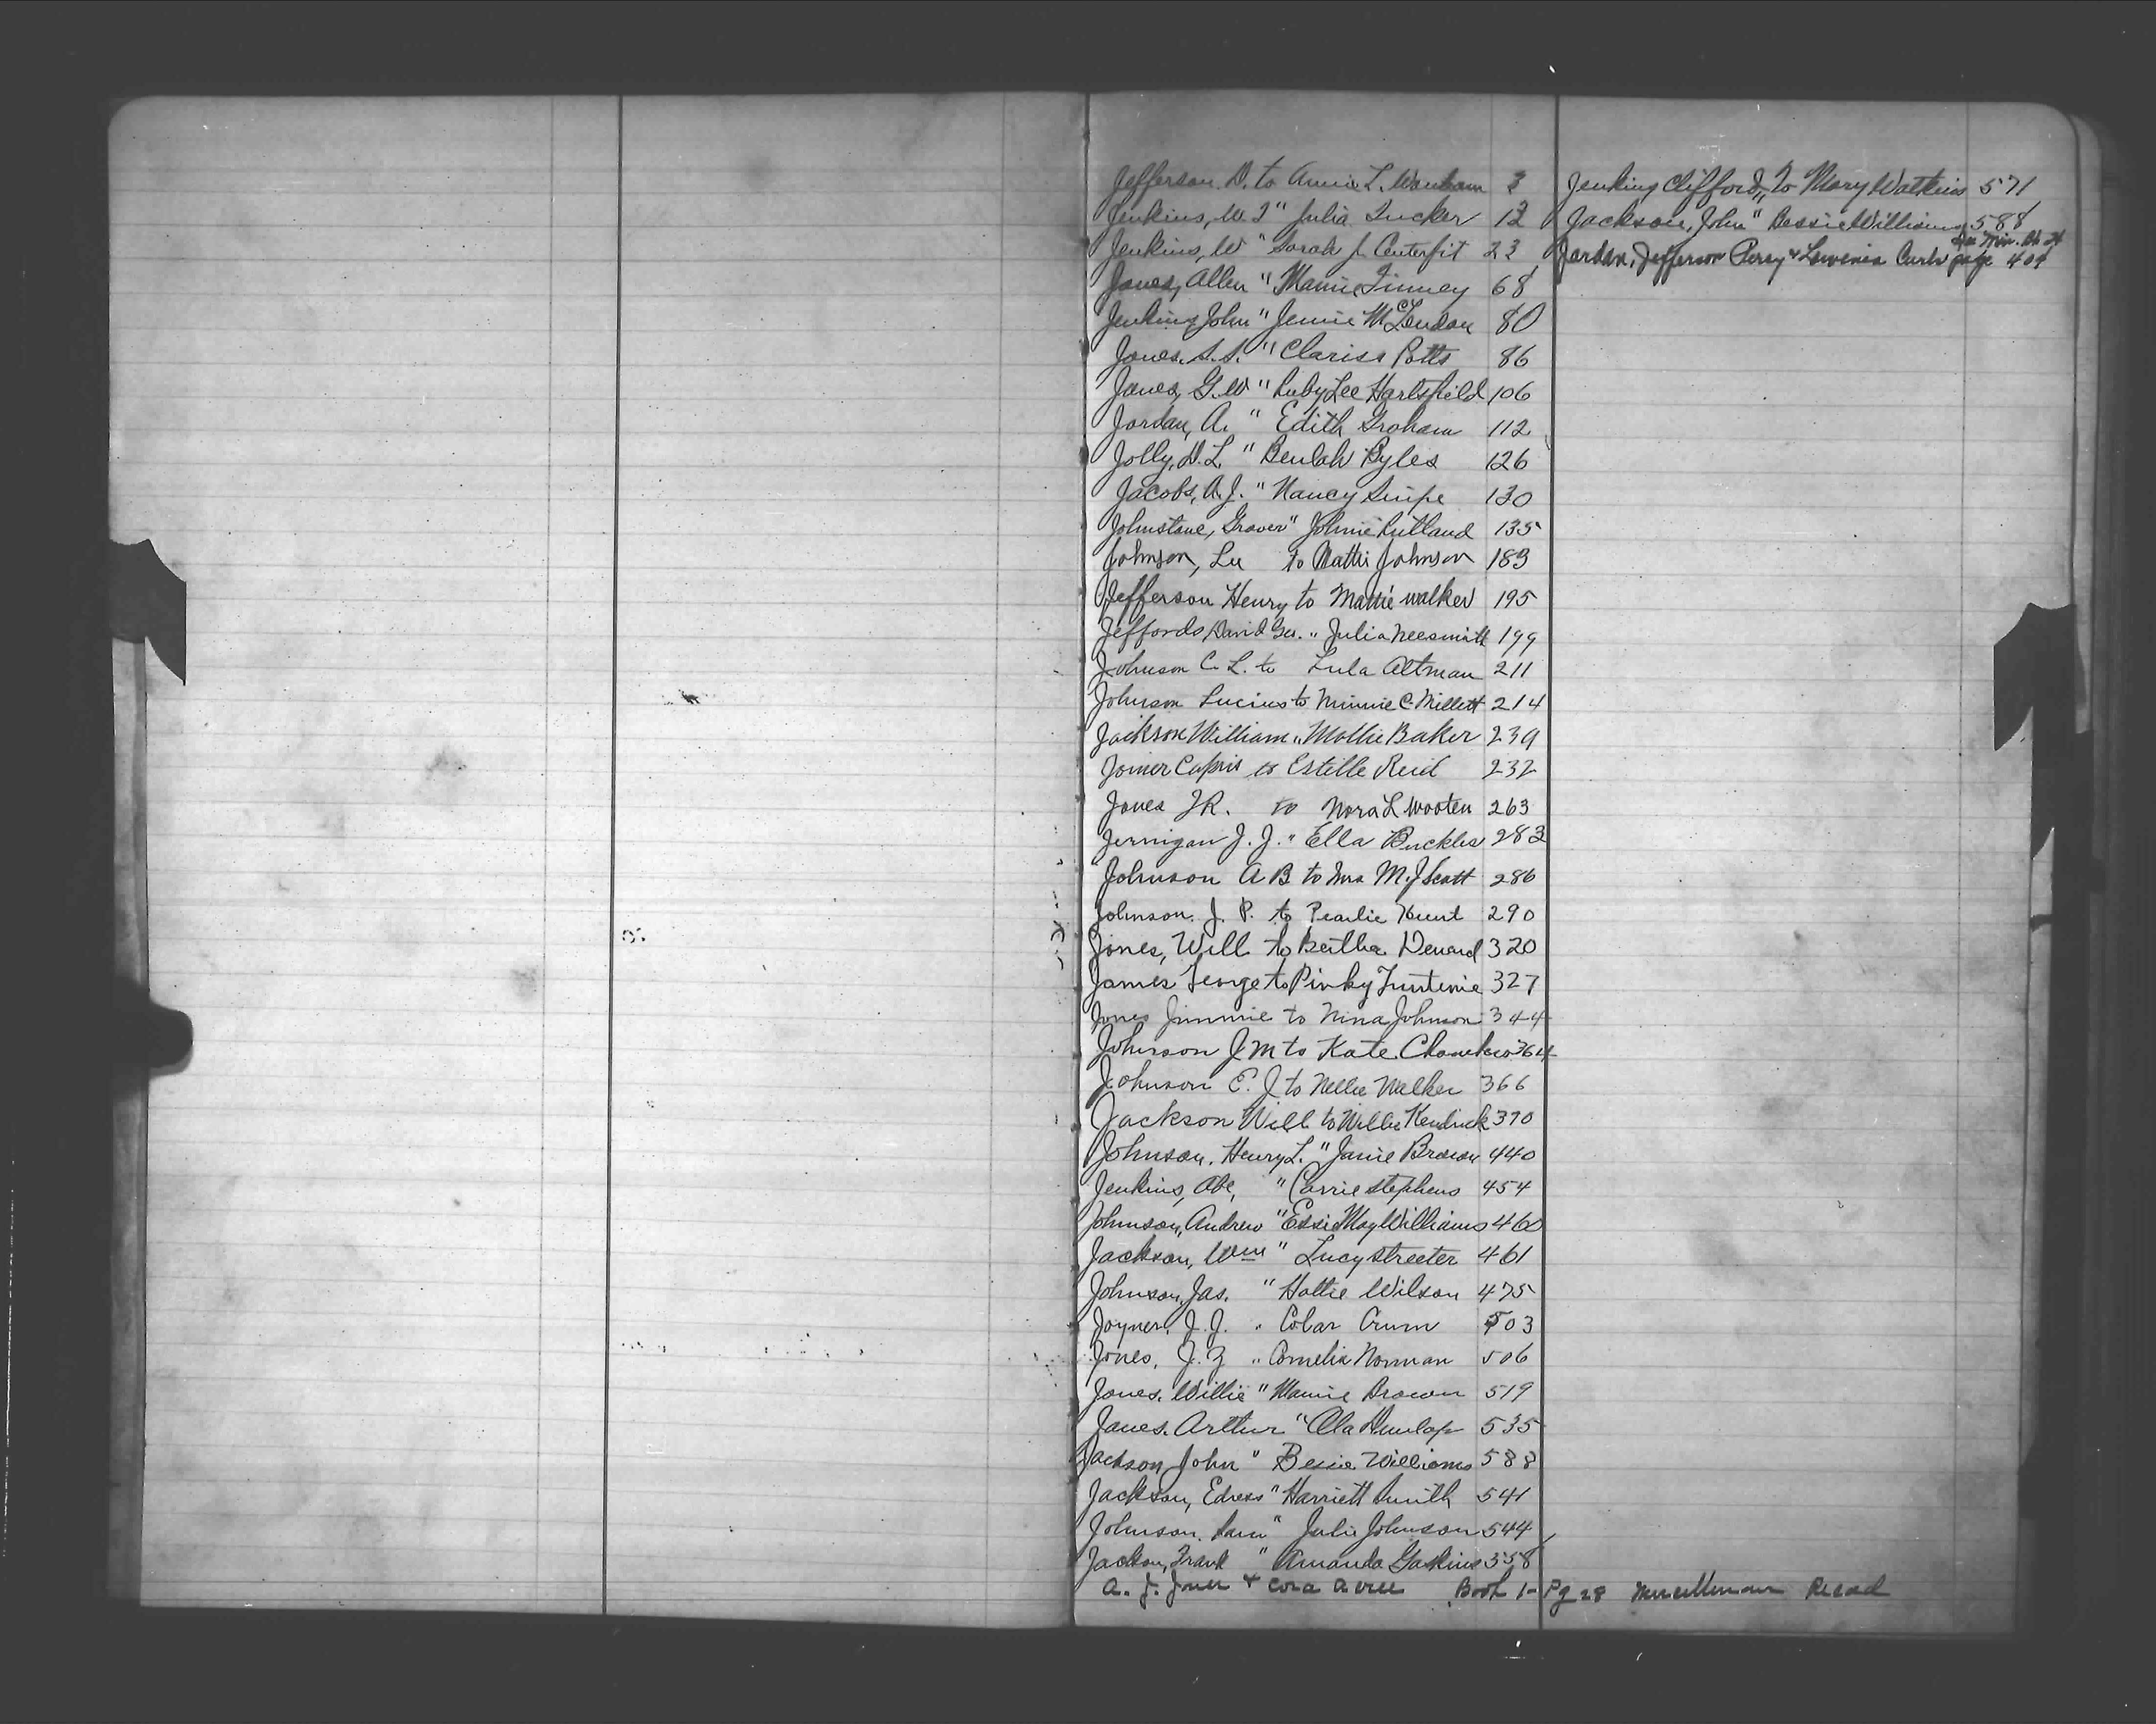 Jefferson D. to Annie L. Wareham 3
Jenkins, W. T " Julia Tucker 12
Jenkins, W " Sarah J. Centerfit 23
Jones, Allen " Mamie Finney 68
Jenkins, John " Jennie McLendon 80
Jones. S. S. " Clarissa Potts 86
Jones, G. W " Ruby Lee Hartsfield 106
Jordan, A. " Edith Graham 112
Jolly, D. L " Beulah Byles 126
Jacobs, A. J. " Nancy Snipe 130
Johnstone, Grover " Johnie Rutland 135
Johnson, Lee to Mattie Johnson 183
Jefferson Henry to Mattie Walker 195
Jeffords, David Geo. " Julia Neesmith 199
Johnson C. L. to Lula Altman 211
Johnson Lucius to Minnie C. Millett 214
Jackson William " Mollie Baker 239
Joiner to Estelle Reid 232
Jones J R. to Nora L Wooten 263
Jernigan J. J. " Ella Buckles 283
Johnson A B to Mrs M. J Scott 286
Johnson. J. P. to Pearlie Hunt 290
Jones, Will to Bertha Denard 320
James George to Pinky 327
Jones Jimmie to Nina Johnson 344
Johnson J M to Kate. Chambers 364
Johnson E. J to Nellie Walker 366
Jackson Will to Willie Kendrick 370
Johnson. Henry L. " Janie Brown 440
Jenkins, Abe, " Carrie Stephens 454
Johnson, Andrew " Essie May Williams 460
Jackson, Wm " Lucy Streeter 461
Johnson, Jas. " Hattie Wilson 475
Joyner. J. J. " Crum 503
Jones, J. Z " Cornelia Norman 506
Jones. Willie " Mamie Brown 519
Jones. Arthur " Ola Dunlap 535
Jackson John " Bessie Williams 588
Jackson, " Harriett Smith 541
Johnson. Sam " Julia Johnson 544
Jackson, Frank " Amanda Gaskins 558
A. J. Jones & Cora Acree Book 1 - Pg 28 Miscellaneous Record
Jenkins Clifford, to Mary Watkins 571
Jackson, John " Bessie Williams 588
Jordan, Jefferson Percy & Lavinia page 409